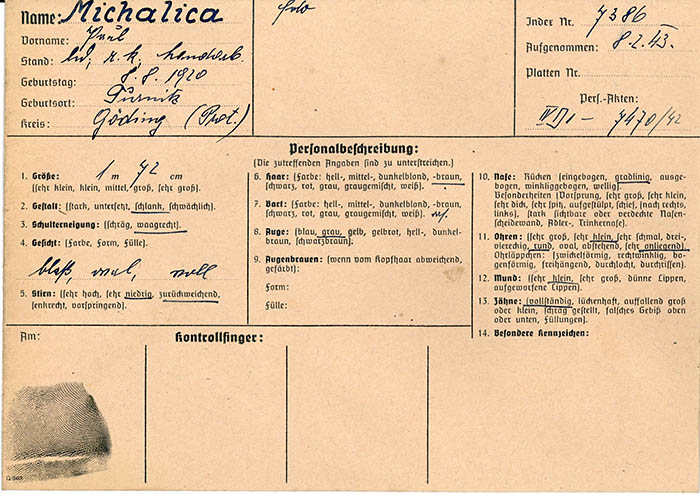 Name: Michalica
Vorname: Paul
Stand: led, r. k., landarb.
Geburtstag: 8. 8. 1920
Geburtsort:
Kreis: Göding (Prot.)
Index Nr. 7386
Aufgenommen: 8. 2. 43.
Platten Nr.
Pers.-Akten:
IV D 1 - 7470/42
Personalbeschreibung:
(Die zutreffenden Angaben sind zu unterstreichen.)
1. Größe: 1 m 72 cm
(sehr klein, klein, mittel, groß, sehr groß).
2. Gestalt: (stark, untersetzt, schlank, schwächlich).
3. Schulterneigung: (schräg, waagrecht).
4. Gesicht: (Farbe, Form, Fülle).
blaß, oval, voll
5. Stirn: (sehr hoch, sehr niedrig, zurückweichend,
senkrecht, vorspringend).
6. Haar: (Farbe: hell-, mittel-, dunkelblond, -braun,
schwarz, rot, grau, graugemischt, weiß).
7. Bart: (Farbe: hell-, mittel-, dunkelblond, -braun,
schwarz, rot, grau, graugemischt, weiß).
8. Auge: (blau, grau, gelb, gelbrot, hell-, dunkel-
braun, schwarzbraun).
9. Augenbrauen: (wenn vom Kopfhaar abweichend,
gefärbt):
Form:
Fülle:
10. Nase: Rücken (eingebogen, gradlinig, ausge-
bogen, winkliggebogen, wellig).
Besonderheiten (Vorsprung, sehr groß, sehr klein,
sehr dick, sehr spitz, aufgestülpt, schief, (nach rechts,
links), stark sichtbare oder verdeckte Nasen-
scheidewand, Adler-, Trinkernase).
11. Ohren: (sehr groß, sehr klein, sehr schmal, drei-,
viereckig, rund, oval, abstehend, sehr anliegend).
Ohrläppchen: (zwickelförmig, rechtwinklig, bo-
genförmig, freihängend, durchlocht, durchrissen).
12. Mund: (sehr klein, sehr groß, dünne Lippen,
aufgeworfene Lippen).
13. Zähne: (vollständig, lückenhaft, auffallend groß
oder klein, schräg gestellt, falsches Gebiß oben
oder unten, Füllungen).
14. Besondere Kennzeichen:
Am:
Kontrollfinger: